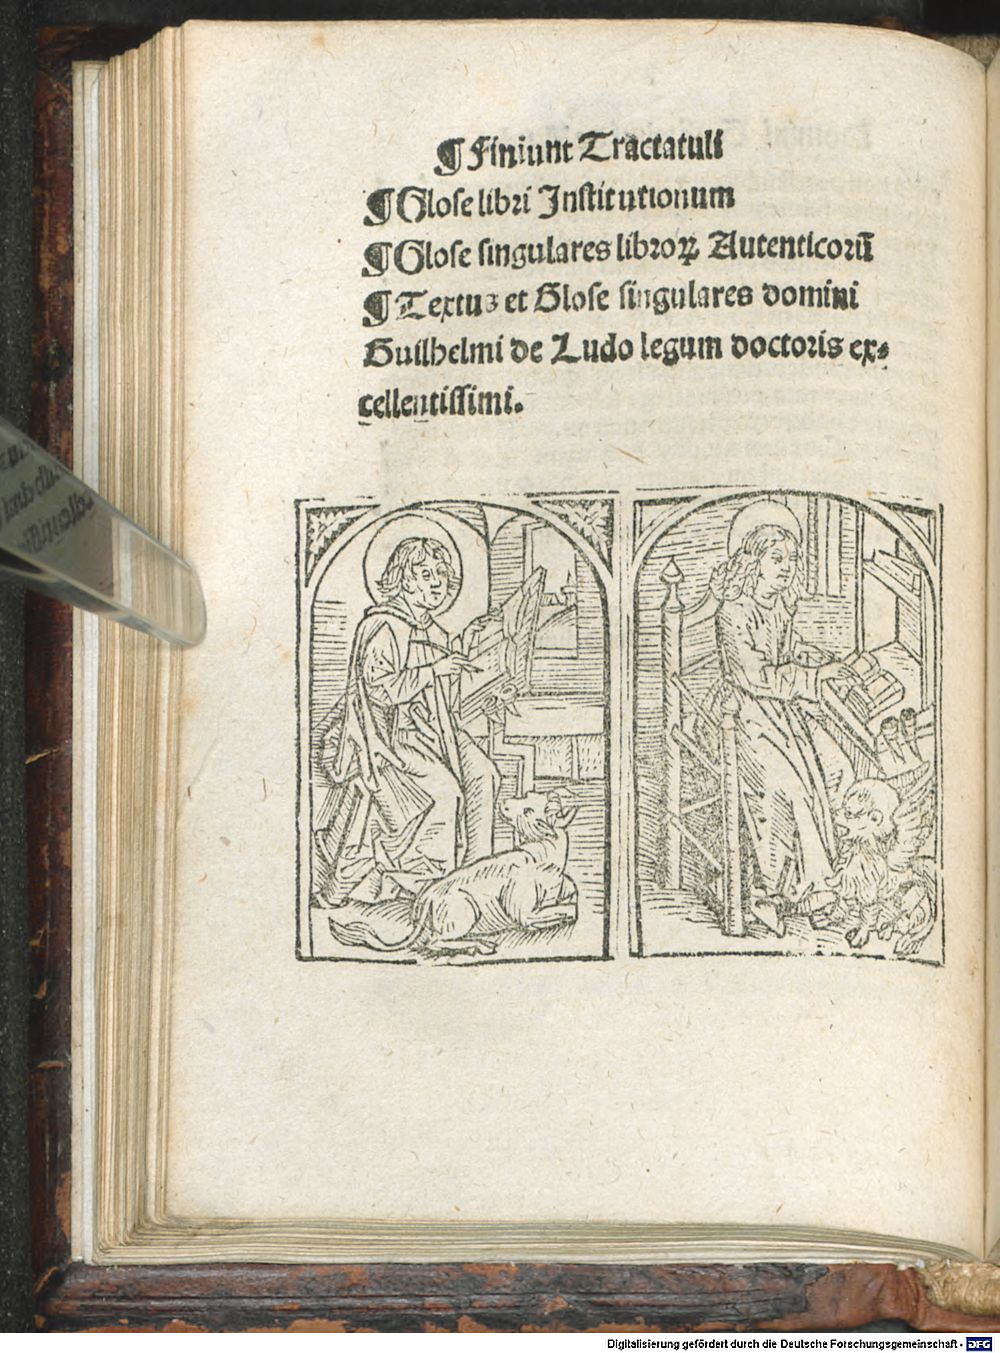 ¶ Finiunt Tractatuli
¶ Glose libri Institutionum
¶ Glose singulares libroꝝ Autenticorū
¶ Textus et Glose singulares domini
Guilhelmi de Ludo legum doctoris ex⸗
cellentissimi.
Digitalisierung gefördert durch die Deutsche Forschungsgemeinschaft - DFG